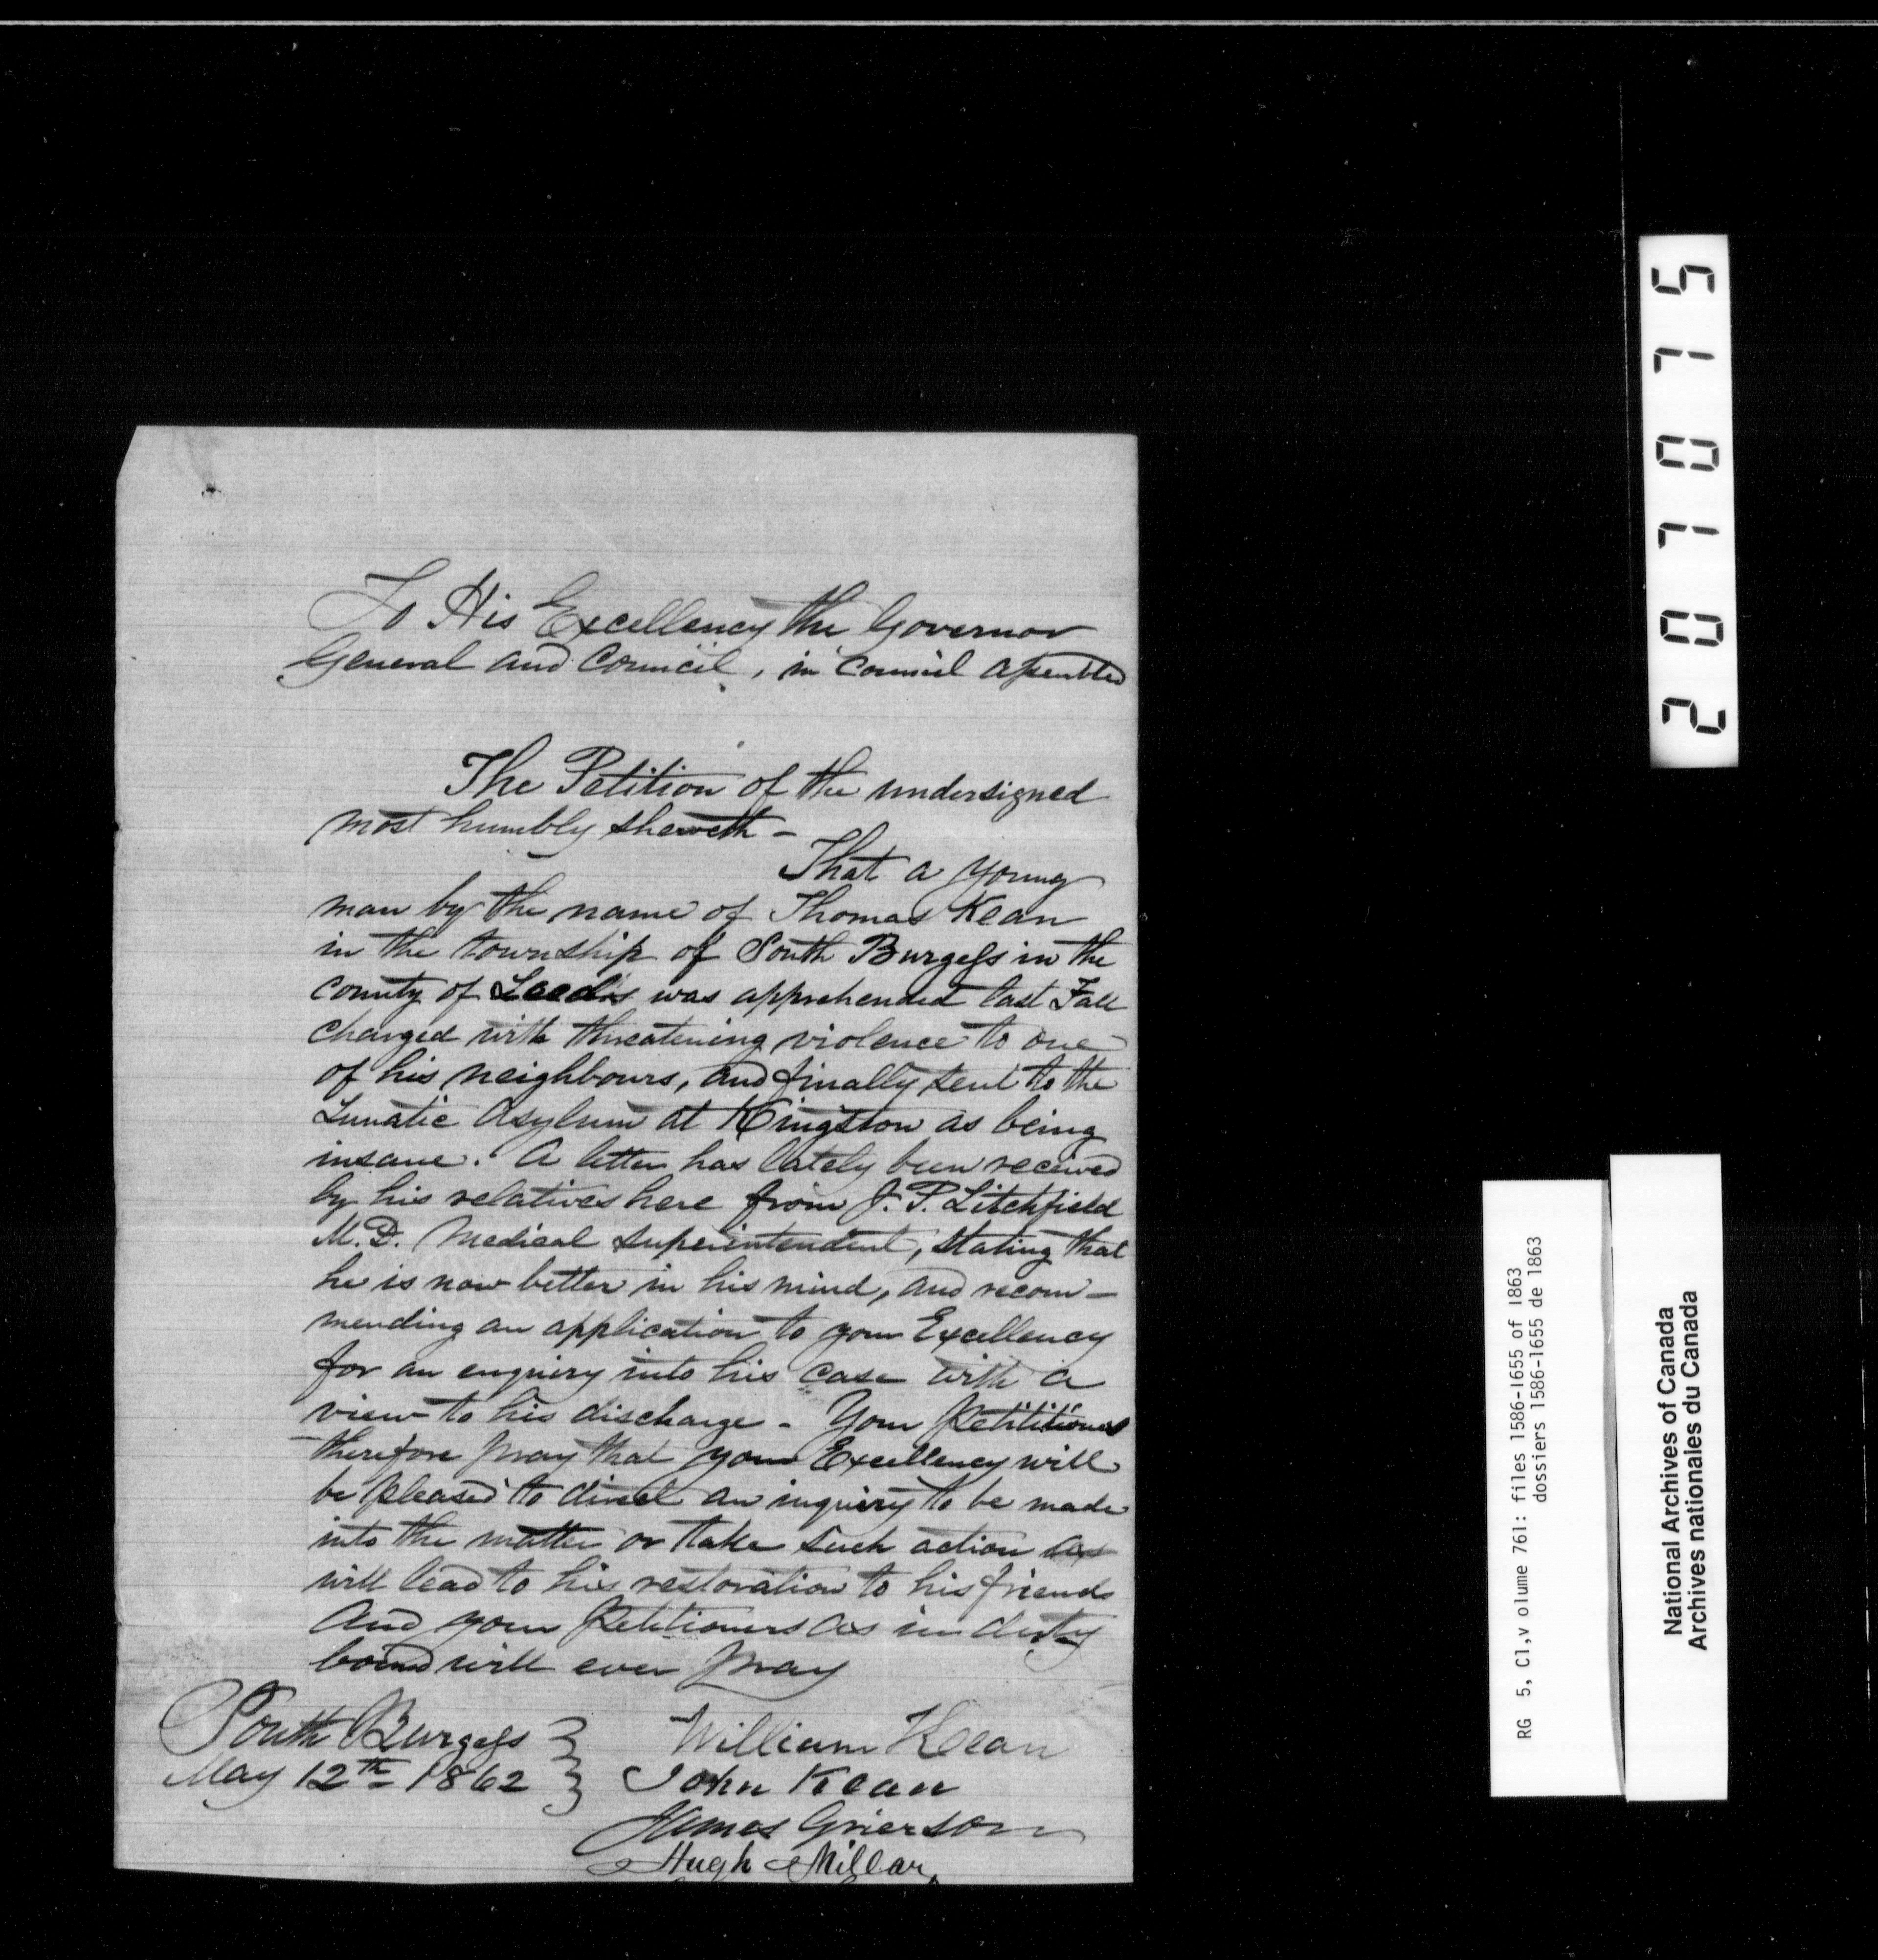 To His Excellency the Governor
General and Council, in Council assembled
The Petition of the undersigned
most humbly sheweth -
That a young
man by the name of Thomas Kean
in the township of South Burgess in the
county of Leeds was apprehended last Fall
charged with threatening violence to one
of his neighbours, and finally sent to the
Lunatic Asylum at Kingston as being
insane. A letter has lately been received
by his relatives here from J. P. Litchfield
M.D. Medical Superintendent, stating that
he is now better in his mind, and recom-
mending an application to your Excellency
for an enquiry into his case with a
view to his discharge - Your Petitioners
therefore pray that your Excellency will
be pleased to direct an inquiry to be made
into the matter or take such action as
will lead to his restoration to his friends
And your Petitioners as in duty
bound will ever pray
South Burgess
May 12th 1862
William Kean
John Kean
James Grierson
Hugh Millar
207075
RG 5, C1,v olume 761: files 1586-1655 of 1863
dossiers 1586-1655 de 1863
National Archives of Canada
Archives nationales du Canada